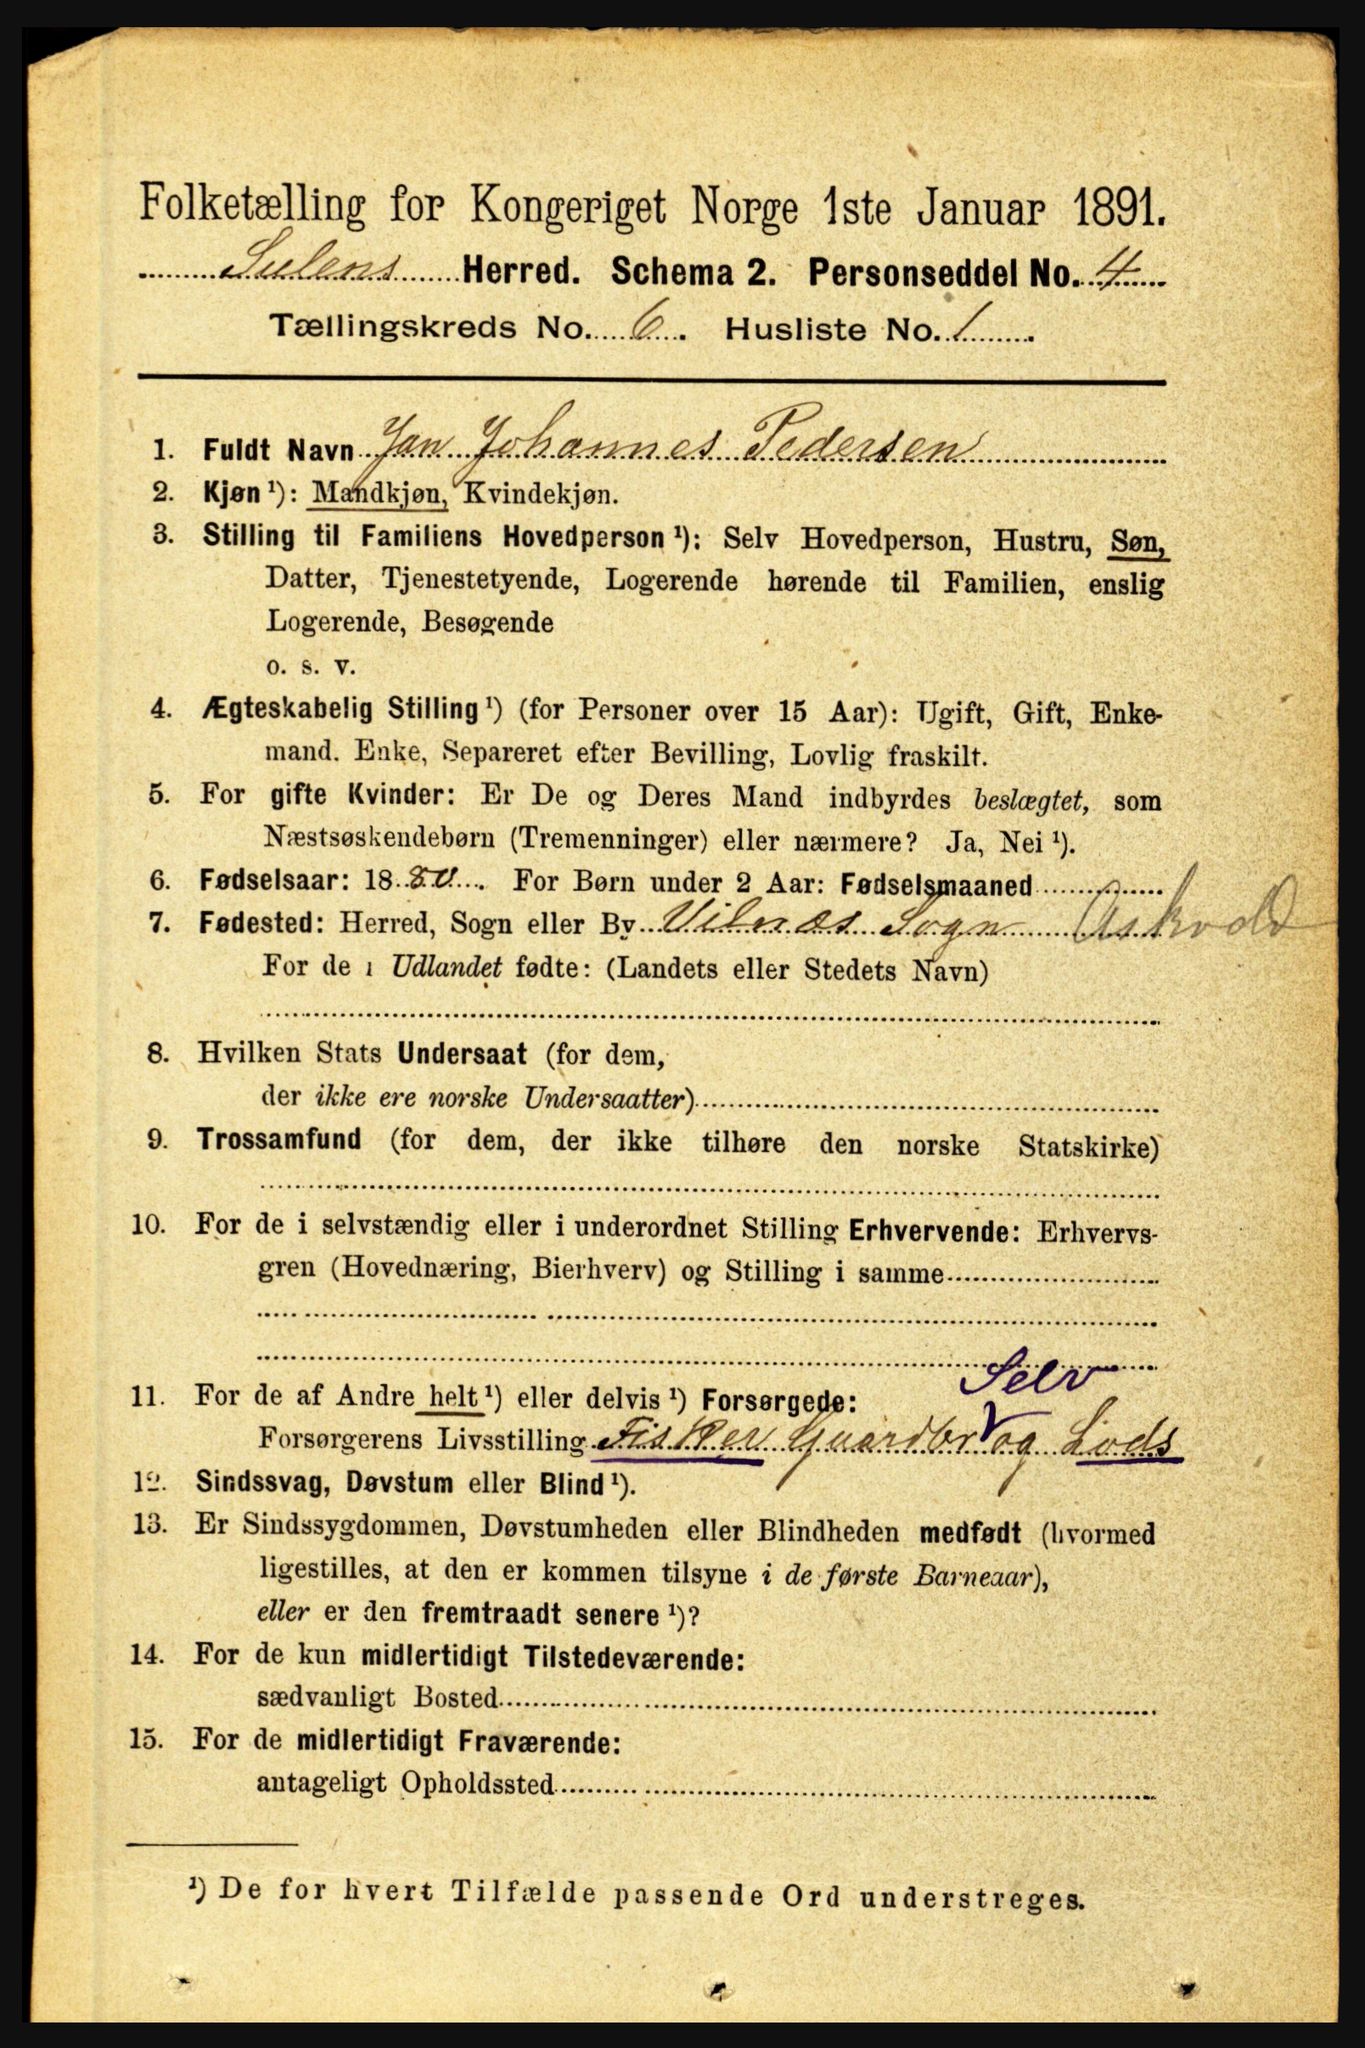 Folketælling for Kongeriget Norge 1ste Januar 1891.
Sulens Herred. Schema 2. Personseddel No. 4
Tællingskreds No. 6. Husliste No. 1
1. Fuldt Navn Jan Johannes Pedersen
2. Kjøn ¹): Mandkjøn, Kvindekjøn.
3. Stilling til Familiens Hovedperson ¹): Selv Hovedperson, Hustru, Søn,
Datter, Tjenestetyende, Logerende hørende til Familien, enslig
Logerende, Besøgende
o. s. v.
4. Ægteskabelig Stilling ¹) (for Personer over 15 Aar): Ugift, Gift, Enke-
mand. Enke, Separeret efter Bevilling, Lovlig fraskilt.
5. For gifte Kvinder: Er De og Deres Mand indbyrdes beslægtet, som
Næstsøskendebørn (Tremenninger) eller nærmere? Ja, Nei ¹).
6. Fødselsaar: 1880. For Børn under 2 Aar: Fødselsmaaned
7. Fødested: Herred, Sogn eller By Vilnæs Sogn Askvold
For de i Udlandet fødte: (Landets eller Stedets Navn)
8. Hvilken Stats Undersaat (for dem,
der ikke ere norske Undersaatter)
9. Trossamfund (for dem, der ikke tilhøre den norske Statskirke)
10. For de i selvstændig eller i underordnet Stilling Erhvervende: Erhvervs-
gren (Hovednæring, Bierhverv) og Stilling i samme
Selv
11. For de af Andre helt ¹) eller delvis ¹) Forsørgede:
Forsørgerens Livsstilling Fisker Gaardbr og Lods
12. Sindssvag, Døvstum eller Blind ¹).
13. Er Sindssygdommen, Døvstumheden eller Blindheden medfødt (hvormed
ligestilles, at den er kommen tilsyne i de første Barneaar),
eller er den fremtraadt senere ¹)?
14. For de kun midlertidigt Tilstedeværende:
sædvanligt Bosted
15. For de midlertidigt Fraværende:
antageligt Opholdssted
¹) De for hvert Tilfælde passende Ord understreges.